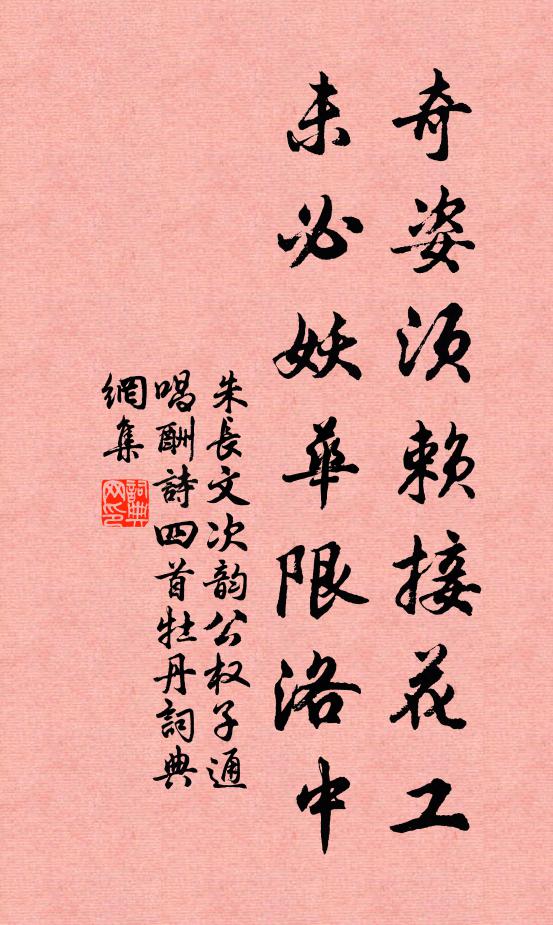 奇姿須賴接花工
未必妖華限洛中
朱長文次韵公权子通
唱酬詩四首牡丹詞典
網集
詞典網印